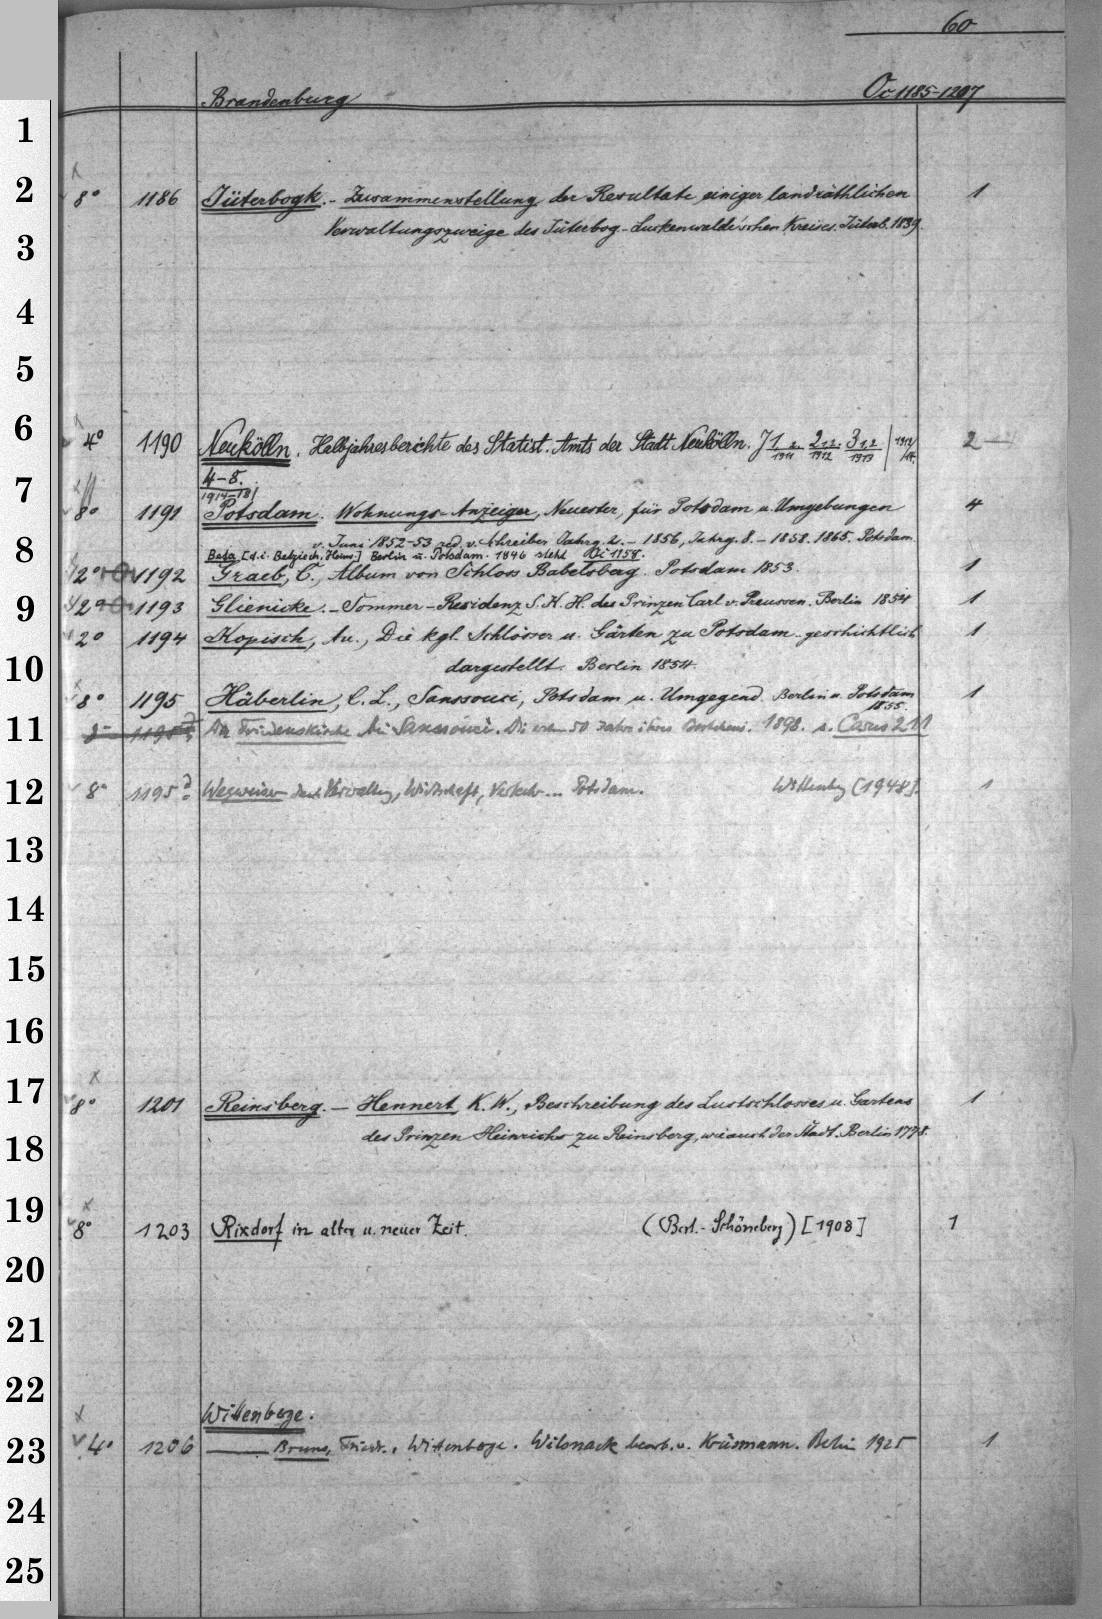 60
Brandenburg Oc 1185-1207
8° 1186 Jüterbogk. - Zusammenstellung der Resultate einiger landräthlichen 1
Verwaltungszweige des Jüterbog-Luckenwalde'schen Kreises. Jüterb. 1839.
4° 1190 Neukölln. Halbjahresberichte des Statist. Amts der Stadt Neukölln. J 1 1.2. 2 1.2. 3 1.2 1913/14. 2 —
1911 1912 1913
4-8.
1914-18
8° 1191 Potsdam. Wohnungs-Anzeiger, Neuester, für Potsdam u. Umgebungen 4
v. Juni 1852-53 red. v. Schreiber Jahrg. 2. - 1856, Jahrg. 8. - 1858. 1865. Potsdam
Beta [d.i. Betziech, Heinr.] Berlin u. Potsdam. 1846 steht Oc 1158.
2° 1192 Graeb, C., Album von Schloss Babelsberg. Potsdam 1853. 1
2° 1193 Glienicke. - Sommer-Residenz S. K. H. des Prinzen Carl v. Preussen. Berlin 1854 1
2° 1194 Kopisch, Au., Die kgl. Schlösser u. Gärten zu Potsdam geschichtlich 1
dargestellt. Berlin 1854.
8° 1195 Häberlin, C. L., Sanssouci, Potsdam u. Umgegend. Berlin u. Potsdam 1
1855.
8° 1195 Die Friedenskirche bei Sanssouci. Die ersten 50 Jahre ihres Bestehens. 1898. s. Casus 211
8° 1195d Wegweiser durch Verwaltung, Wirtschaft, Verkehr ... Potsdam. Wittenberg [1948]. 1
8° 1201 Reinsberg. - Hennert, K. W., Beschreibung des Lustschlosses u. Gartens 1
des Prinzen Heinrichs zu Reinsberg, wie auch der Stadt. Berlin 1778.
8° 1203 Rixdorf in alter u. neuer Zeit. (Berl.-Schöneberg) [1908] 1
Wittenberge:
4° 1206 —— Bruns, Friedr., Wittenberge. Wilsnack bearb. v. Krüsmann. Berlin 1925 1